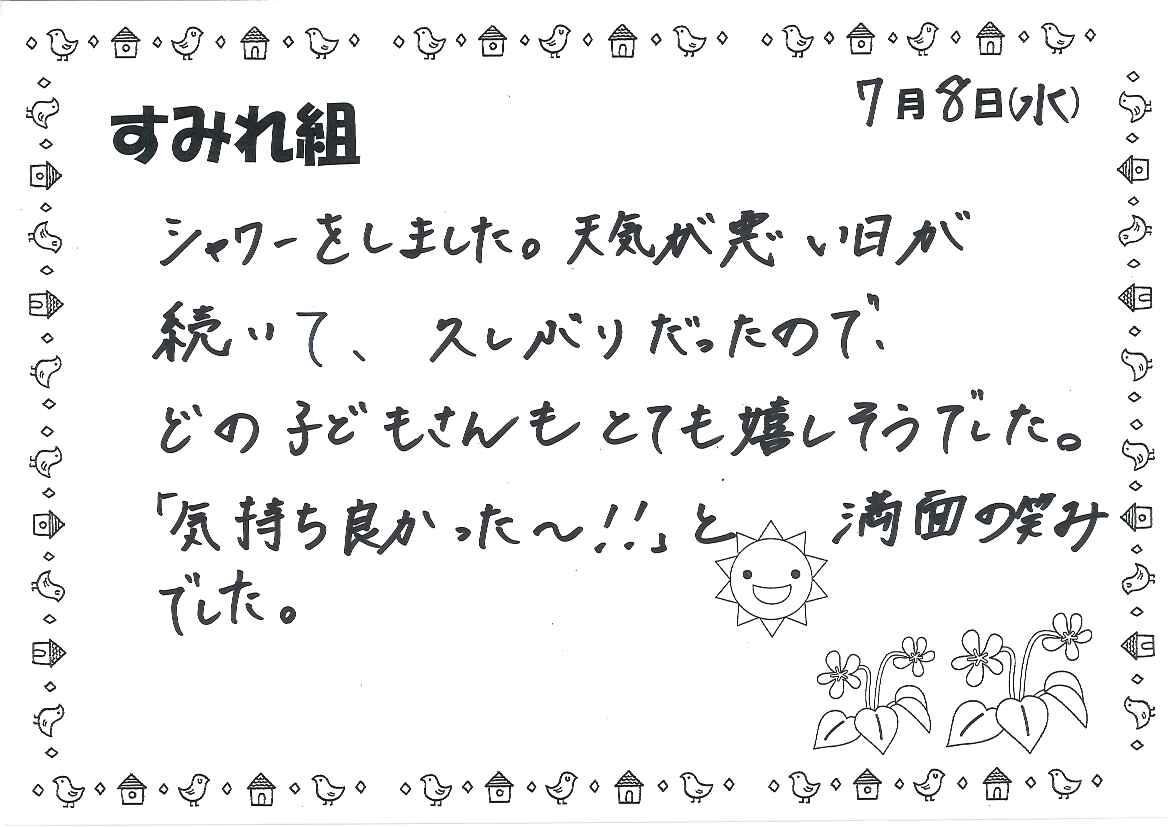 7月8日(水)
すみれ組
シャワーをしました。天気が悪い日が
続いて、久しぶりだったので、
どの子どもさんもとても嬉しそうでした。
「気持ち良かった〜!!」と 満面の笑み
でした。